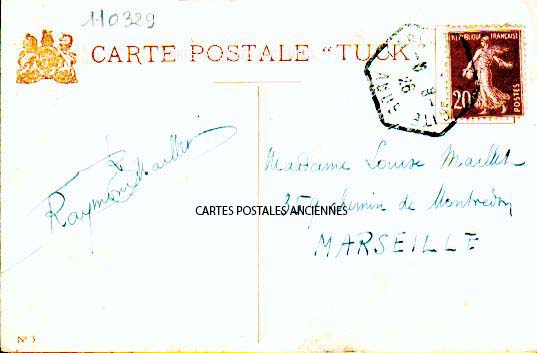 110329
CARTE POSTALE "TUCK"
RÉPUBLIQUE FRANÇAISE
20c
POSTES
Madame Louise Maillet
Raymond Maillet
CARTES POSTALES ANCIENNES
chemin de Montredon
MARSEILLE
Nº 3